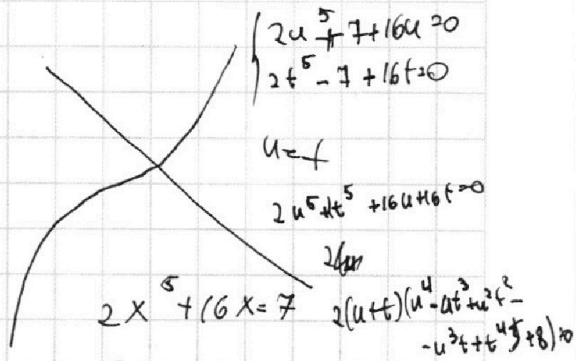 2u⁵ + 7 + 16u = 0
2t⁵ - 7 + 16t = 0
u = t
2u⁵ + 2t⁵ + 16u + 16t = 0
2x⁵ + 16x = 7
2(u+t)(u⁴ - ut³ + u²t² -
- u³t + t⁴ + 8) = 0